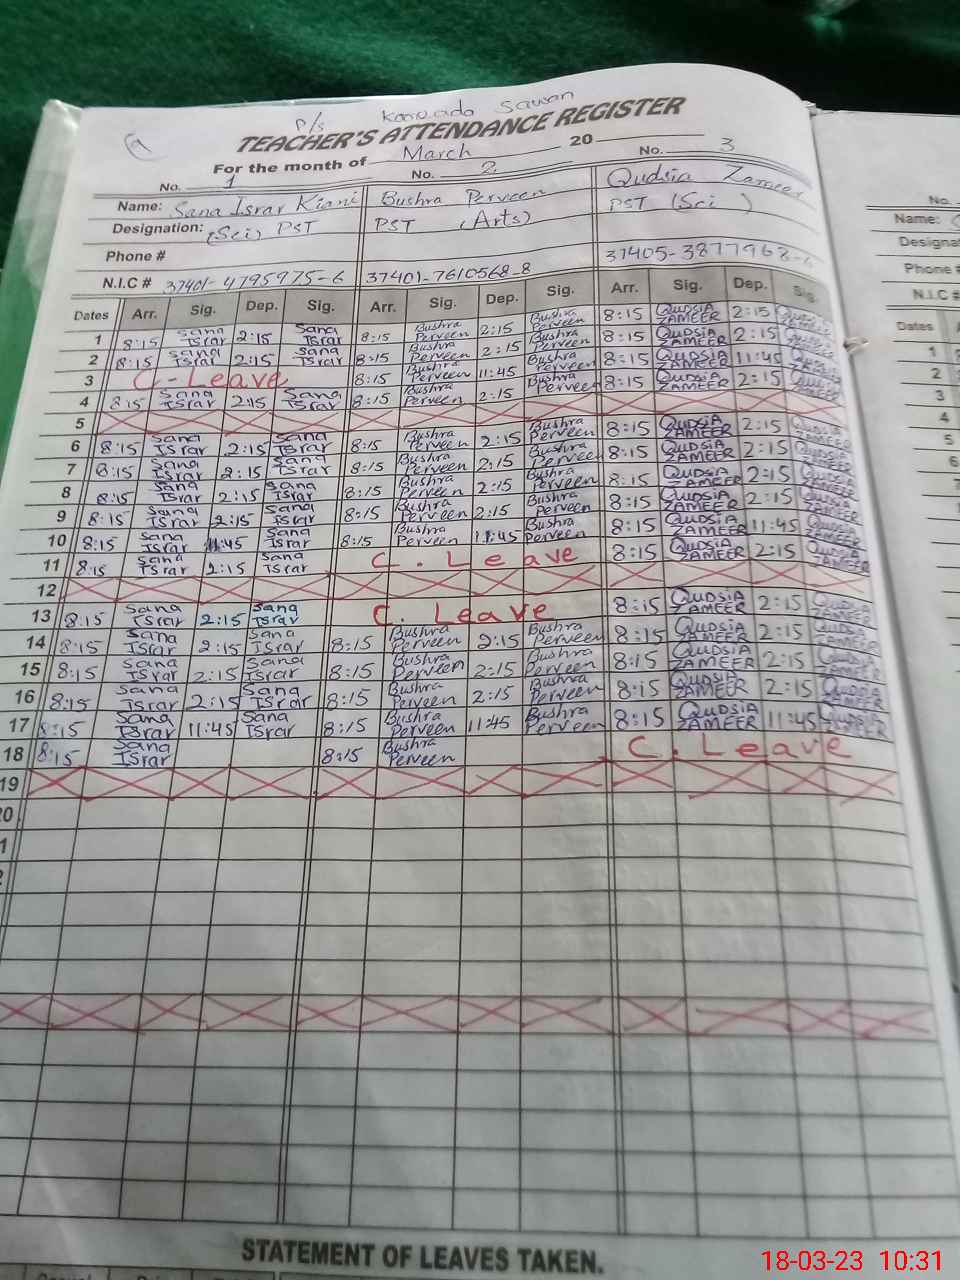 P/s Sawan
TEACHER'S ATTENDANCE REGISTER
For the month of March 20
No. 1 No. 2 No. 3
Name: Sana Israr Kiani Bushra Perveen Qudsia Zameer
Designation: (Sci) PST PST (Arts) PST (Sci)
Phone #
N.I.C # 37401-4795975-6 37401-7610568-8 37405-3877968-
Dates Arr. Sig. Dep. Sig. Arr. Sig. Dep. Sig. Arr. Sig. Dep. Sig.
1 8:15 Sana Israr 2:15 Sana Israr 8:15 Bushra Perveen 2:15 Bushra Perveen 8:15 QUDSIA ZAMEER 2:15 QUDSIA ZAMEER
2 8:15 Sana Israr 2:15 Sana Israr 8:15 Bushra Perveen 2:15 Bushra Perveen 8:15 QUDSIA ZAMEER 2:15 QUDSIA ZAMEER
3 C-Leave 8:15 Bushra Perveen 11:45 Bushra Perveen 8:15 QUDSIA ZAMEER 11:45 QUDSIA ZAMEER
4 8:15 Sana Israr 2:15 Sana Israr 8:15 Bushra Perveen 2:15 Bushra Perveen 8:15 QUDSIA ZAMEER 2:15 QUDSIA ZAMEER
5
6 8:15 Sana Israr 2:15 Sana Israr 8:15 Bushra Perveen 2:15 Bushra Perveen 8:15 QUDSIA ZAMEER 2:15 QUDSIA ZAMEER
7 8:15 Sana Israr 2:15 Sana Israr 8:15 Bushra Perveen 2:15 Bushra Perveen 8:15 QUDSIA ZAMEER 2:15 QUDSIA ZAMEER
8 8:15 Sana Israr 2:15 Sana Israr 8:15 Bushra Perveen 2:15 Bushra Perveen 8:15 QUDSIA ZAMEER 2:15 QUDSIA ZAMEER
9 8:15 Sana Israr 2:15 Sana Israr 8:15 Bushra Perveen 2:15 Bushra Perveen 8:15 QUDSIA ZAMEER 2:15 QUDSIA ZAMEER
10 8:15 Sana Israr 11:45 Sana Israr 8:15 Bushra Perveen 11:45 Bushra Perveen 8:15 QUDSIA ZAMEER 11:45 QUDSIA ZAMEER
11 8:15 Sana Israr 2:15 Sana Israr C. Leave 8:15 QUDSIA ZAMEER 2:15 QUDSIA ZAMEER
12
13 8:15 Sana Israr 2:15 Sana Israr C. Leave 8:15 QUDSIA ZAMEER 2:15 QUDSIA ZAMEER
14 8:15 Sana Israr 2:15 Sana Israr 8:15 Bushra Perveen 2:15 Bushra Perveen 8:15 QUDSIA ZAMEER 2:15 QUDSIA ZAMEER
15 8:15 Sana Israr 2:15 Sana Israr 8:15 Bushra Perveen 2:15 Bushra Perveen 8:15 QUDSIA ZAMEER 2:15 QUDSIA ZAMEER
16 8:15 Sana Israr 2:15 Sana Israr 8:15 Bushra Perveen 2:15 Bushra Perveen 8:15 QUDSIA ZAMEER 2:15 QUDSIA ZAMEER
17 8:15 Sana Israr 11:45 Sana Israr 8:15 Bushra Perveen 11:45 Bushra Perveen 8:15 QUDSIA ZAMEER 11:45 QUDSIA ZAMEER
18 8:15 Sana Israr 8:15 Bushra Perveen C. Leave
19
20
STATEMENT OF LEAVES TAKEN.
No.
Name:
N.I.C #
Phone #
Dates
1
2
3
4
5
6
18-03-23 10:31